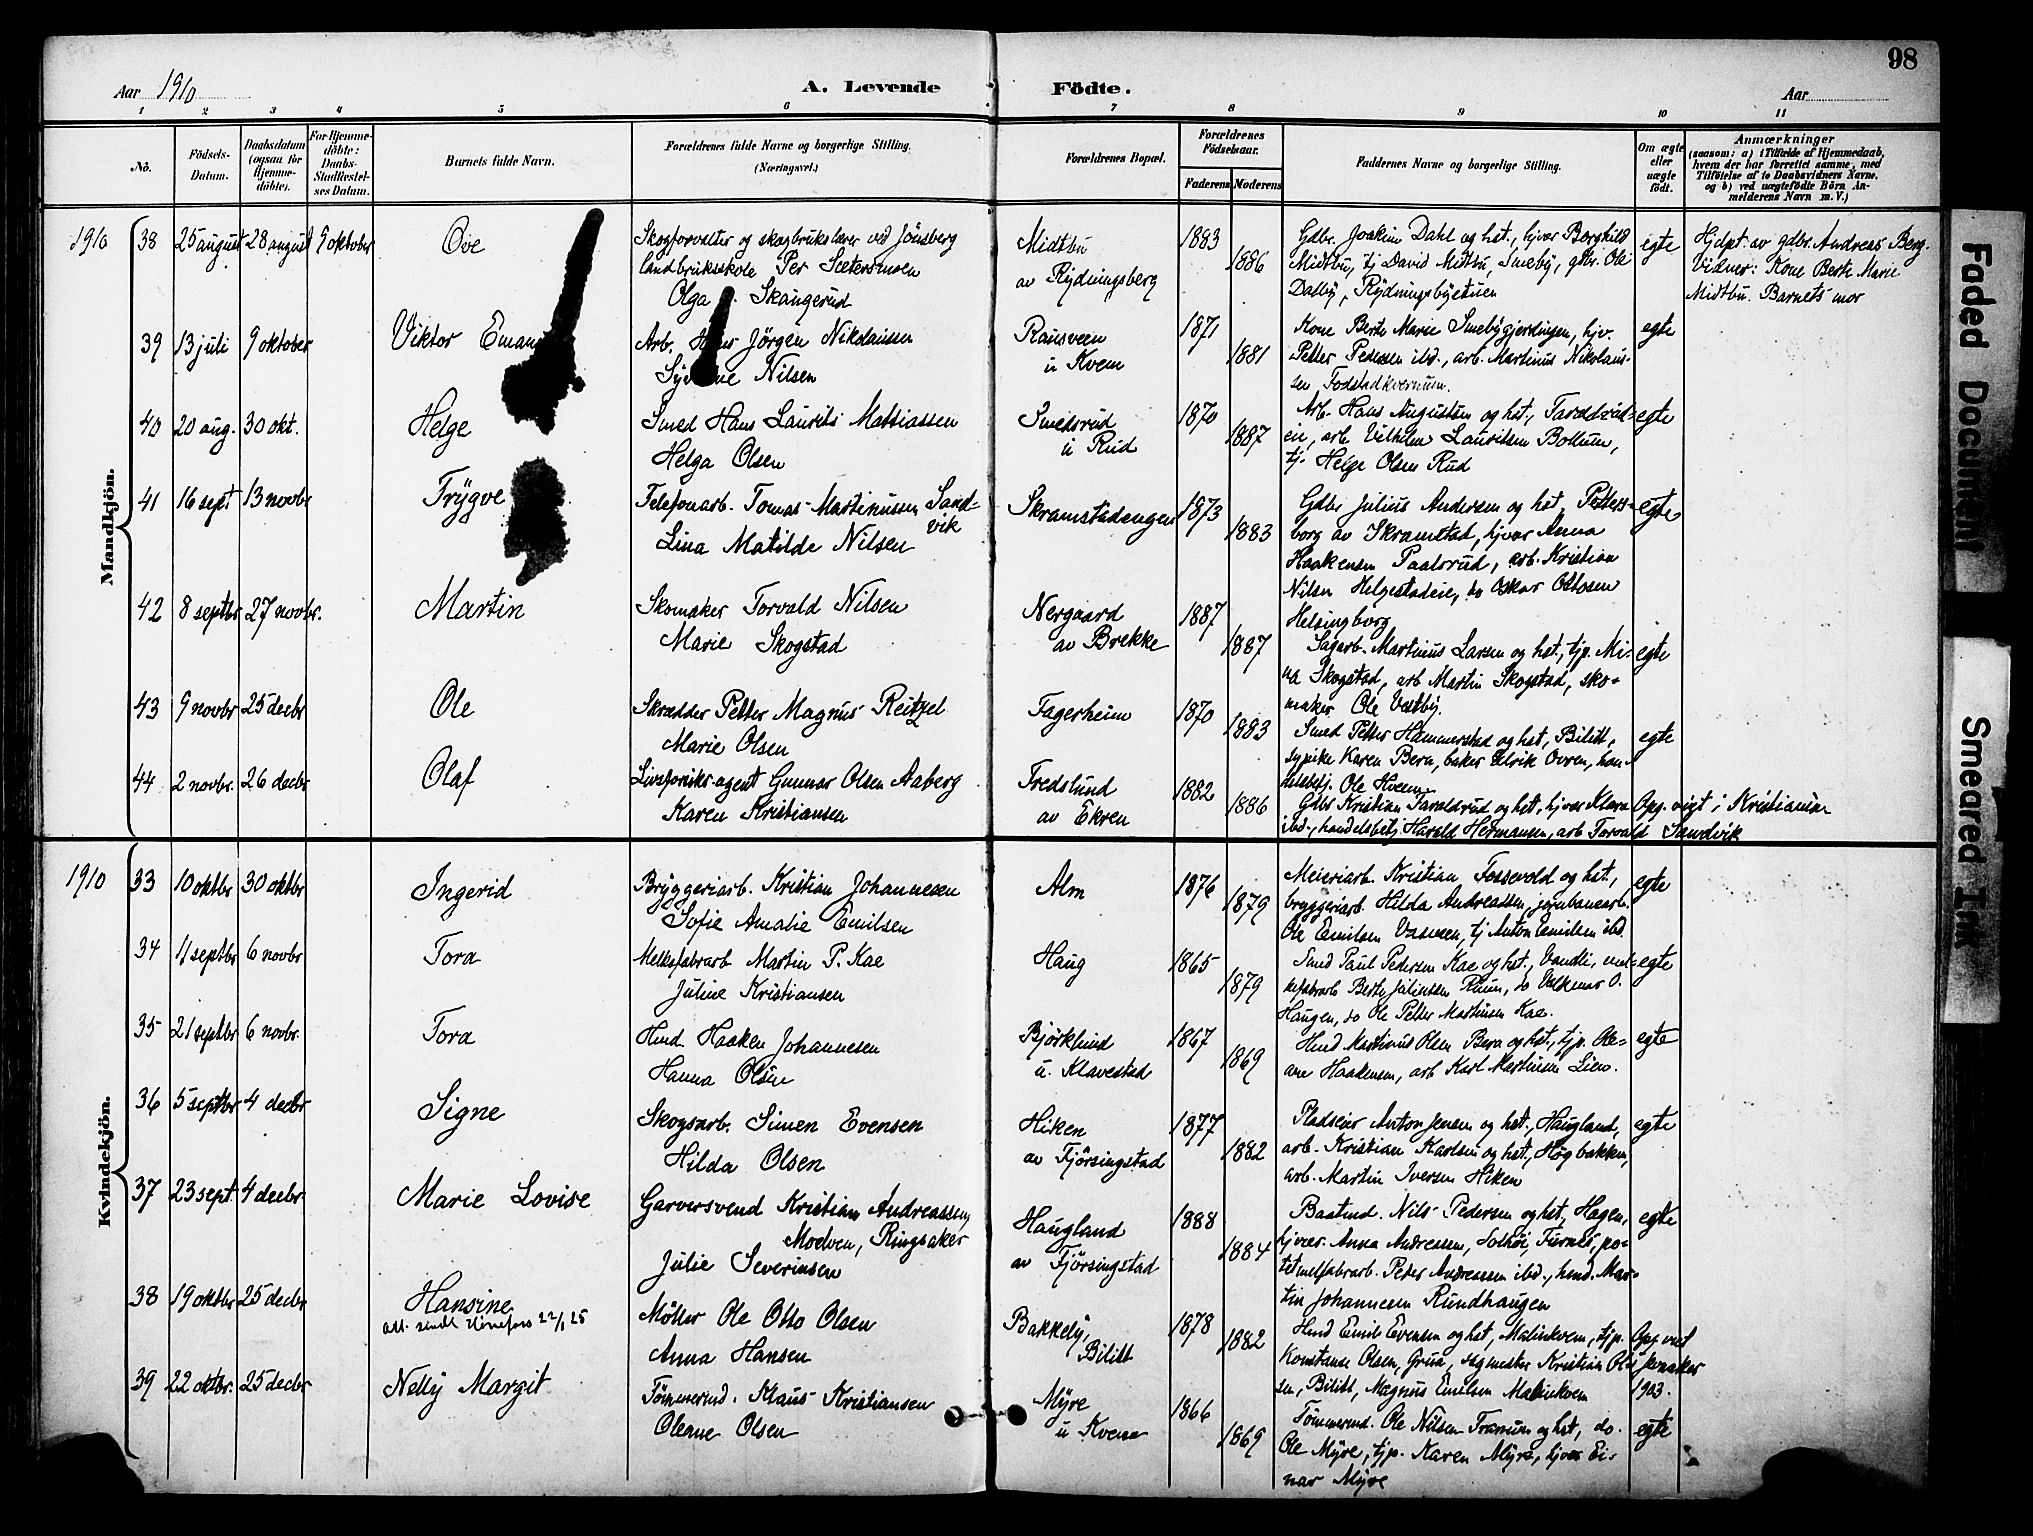 98
Aar 1910
A. Levende Födte.
Aar
1 2 3 4 5 6 7 8 9 10 11
No.
Födsels-Datum.
Daabsdatum (ogsaa for Hjemme-döbte).
For Hjemme-döbte: Daabs-Stadfæstel-ses Datum.
Barnets fulde Navn.
Forældrenes fulde Navne og borgerlige Stilling. (Næringsvei.)
Forældrenes Bopæl.
Forældrenes Födselsaar.
Faderens Moderens
Faddernes Navne og borgerlige Stilling.
Om ægte eller uægte födt.
Anmærkninger
(saasom: a) i Tilfælde af Hjemmedaab, hvem der har forrettet samme, med Tilföielse af to Daabsvidners Navne, og b) ved uægtefödte Börn An-melderens Navn m. V.)
Mandkjön.
1910 38 25 august 28 august 9 oktober Ove
Skogforvalter og skogbrukslærer ved Jönsberg
landbruksskole Per Sætersmoen
Olga Skaugerud
Midtbu
av Rydningsberg
1883 1886
Gdbr. Joakim Dahl og hst., hjvær Borghild
Midtbu, tj David Midtbu, Smeby, gbr. Ole
Dalby, Rydningsbyetuen
egte
Hjdpt. av gdbr. Andreas Berg.
Vidner: Kone Berte Marie
Midtbu. Barnets mor
39 13 juli 9 oktober Viktor Eman
Arb. Hans Jörgen Nikolaissen
Nilsen
Rausveen
u Kvem
1871 1881
Kone Berte Marie Smebygjerdingen, hjv.
Petter Pedersen ibd., arb. Martinus Nikolais-
sen, Fodstadkvernum.
egte
40 20 aug. 30 okt. Helge
Smed Hans Laurits Mattiassen
Helga Olsen
Smedsrud
u Rud
1870 1887
Arb. Hans Augustsen og hst., Taraldrud-
eie, arb Vilhelm Lauritsen Bollum,
tj. Helge Olsen Rud
egte
41 16 sept 13 novbr Trygve
Telefonarb. Tomas Martinussen Sand-
vik
Lina Matilde Nilsen
Skramstadengen
1873 1883
Gdbr Julius Andersen og hst, Petters-
borg av Skramstad, hjvær Anna
Haakensen Paalsrud, arb. Kristian
Nilsen Helgestadeie, do Oskar Ottosen
Helsingborg
egte
42 8 septbr 27 novbr. Martin
Skomaker Torvald Nilsen
Marie Skogstad
Nergaard
av Brekke
1887 1887
Sagarb. Martinius Larsen og hst., tjp. Mi-
na Skogstad, arb Martin Skogstad, sko-
maker Ole Vestby.
egte
43 9 novbr 25 decbr Ole
Skrædder Petter Magnus Reitzel
Marie Olsen
Fagerheim
1870 1883
Smed Petter Hammerstad og hst, Bilitt,
sypike Karen Bera, baker Ulrik Ovren, han-
delsbetj. Ole Hveem
egte
44 2 novbr. 26 decbr Olaf
Livsforsikr.agent Gunnar Olsen Aaberg
Karen Kristiansen
Fredslund
av Ekren
1882 1886
Gdbr Kristian Taraldrud og hst, hjvær Klara
ibd., handelsbetj Harald Hermansen, arb Torvald Sandvik
Opg. vigt i Kristiania
Kvindekjön.
1910 33 10 oktbr 30 oktbr Ingerid
Bryggeriarb. Kristian Johannesen
Sofie Amalie Emilsen
Alm
1876 1879
Meieriarb. Kristian Fossevold og hst.,
bryggeriarb. Hilda Andreassen, jernbanearb.
Ole Emilsen Vasveen, tj Anton Emilsen ibd
egte
34 11 septbr 6 novbr Tora
Melksfabrarb Martin P. Kae
Juline Kristiansen
Haug
1865 1879
Smed Paul Pedersen Kae og hst., Vandli, mel-
kefabrarb Berte Julinssen Ruun, do Volkmar O.
Haugen, do Ole Petter Martinsen Kae.
egte
35 21 septbr 6 novbr. Tora
Hmd. Haaken Johannesen
Hanna Olsen
Björklund
u. Klavestad
1867 1869
Hmd Martinus Olsen Bera og hst, tjp. Ole-
ane Haakensen, arb Karl Martinsen Lien.
egte
36 5 septbr 4 decbr Signe
Skogsarb. Simen Evensen
Hilda Olsen
Hiken
av Fjörsingstad
1877 1882
Pladseier Anton Jensen og hst., Haugland,
arb. Kristian Karlsen og hst., Högbakken,
arb. Martin Iversen Hiken
egte
37 23 sept. 4 decbr Marie Lovise
Garversvend Kristian Andreassen,
Moelven, Ringsaker
Julie Severinsen
Haugland
av Fjörsingstad
1888 1884
Baatmd. Nils Pedersen og hst, Hagen,
hjvær. Anna Andreassen, Solhöi, Furnes, po-
tetmelfabrarb. Peder Andreassen ibd., hmd. Mar-
tin Johannesen Rundhaugen
egte
38 19 oktbr 25 decbr Hansine
att. sendt Hönefoss 22/1 25
Möller Ole Otto Olsen
Anna Hansen
Bakkely,
Bilitt
1878 1882
Hmd Emil Evensen og hst, Malinkvem, tjp.
Konstanse Olsen, Grua, sagmester Kristian Ol-
sen, Bilitt, Magnus Emilsen Malinkvem
Opg. viet
i Jevnaker
1903.
39 22 oktbr. 25 decbr Nelly Margit
Tömmermd. Klaus Kristiansen
Oleane Olsen
Myre
u Kvem
1866 1869
Tömmermd. Ole Nilsen Franum og hst, do.
Ole Myre, tjp. Karen Myre, hjvær Ei-
nar Myre
egte
Faded Document
Smeared Ink